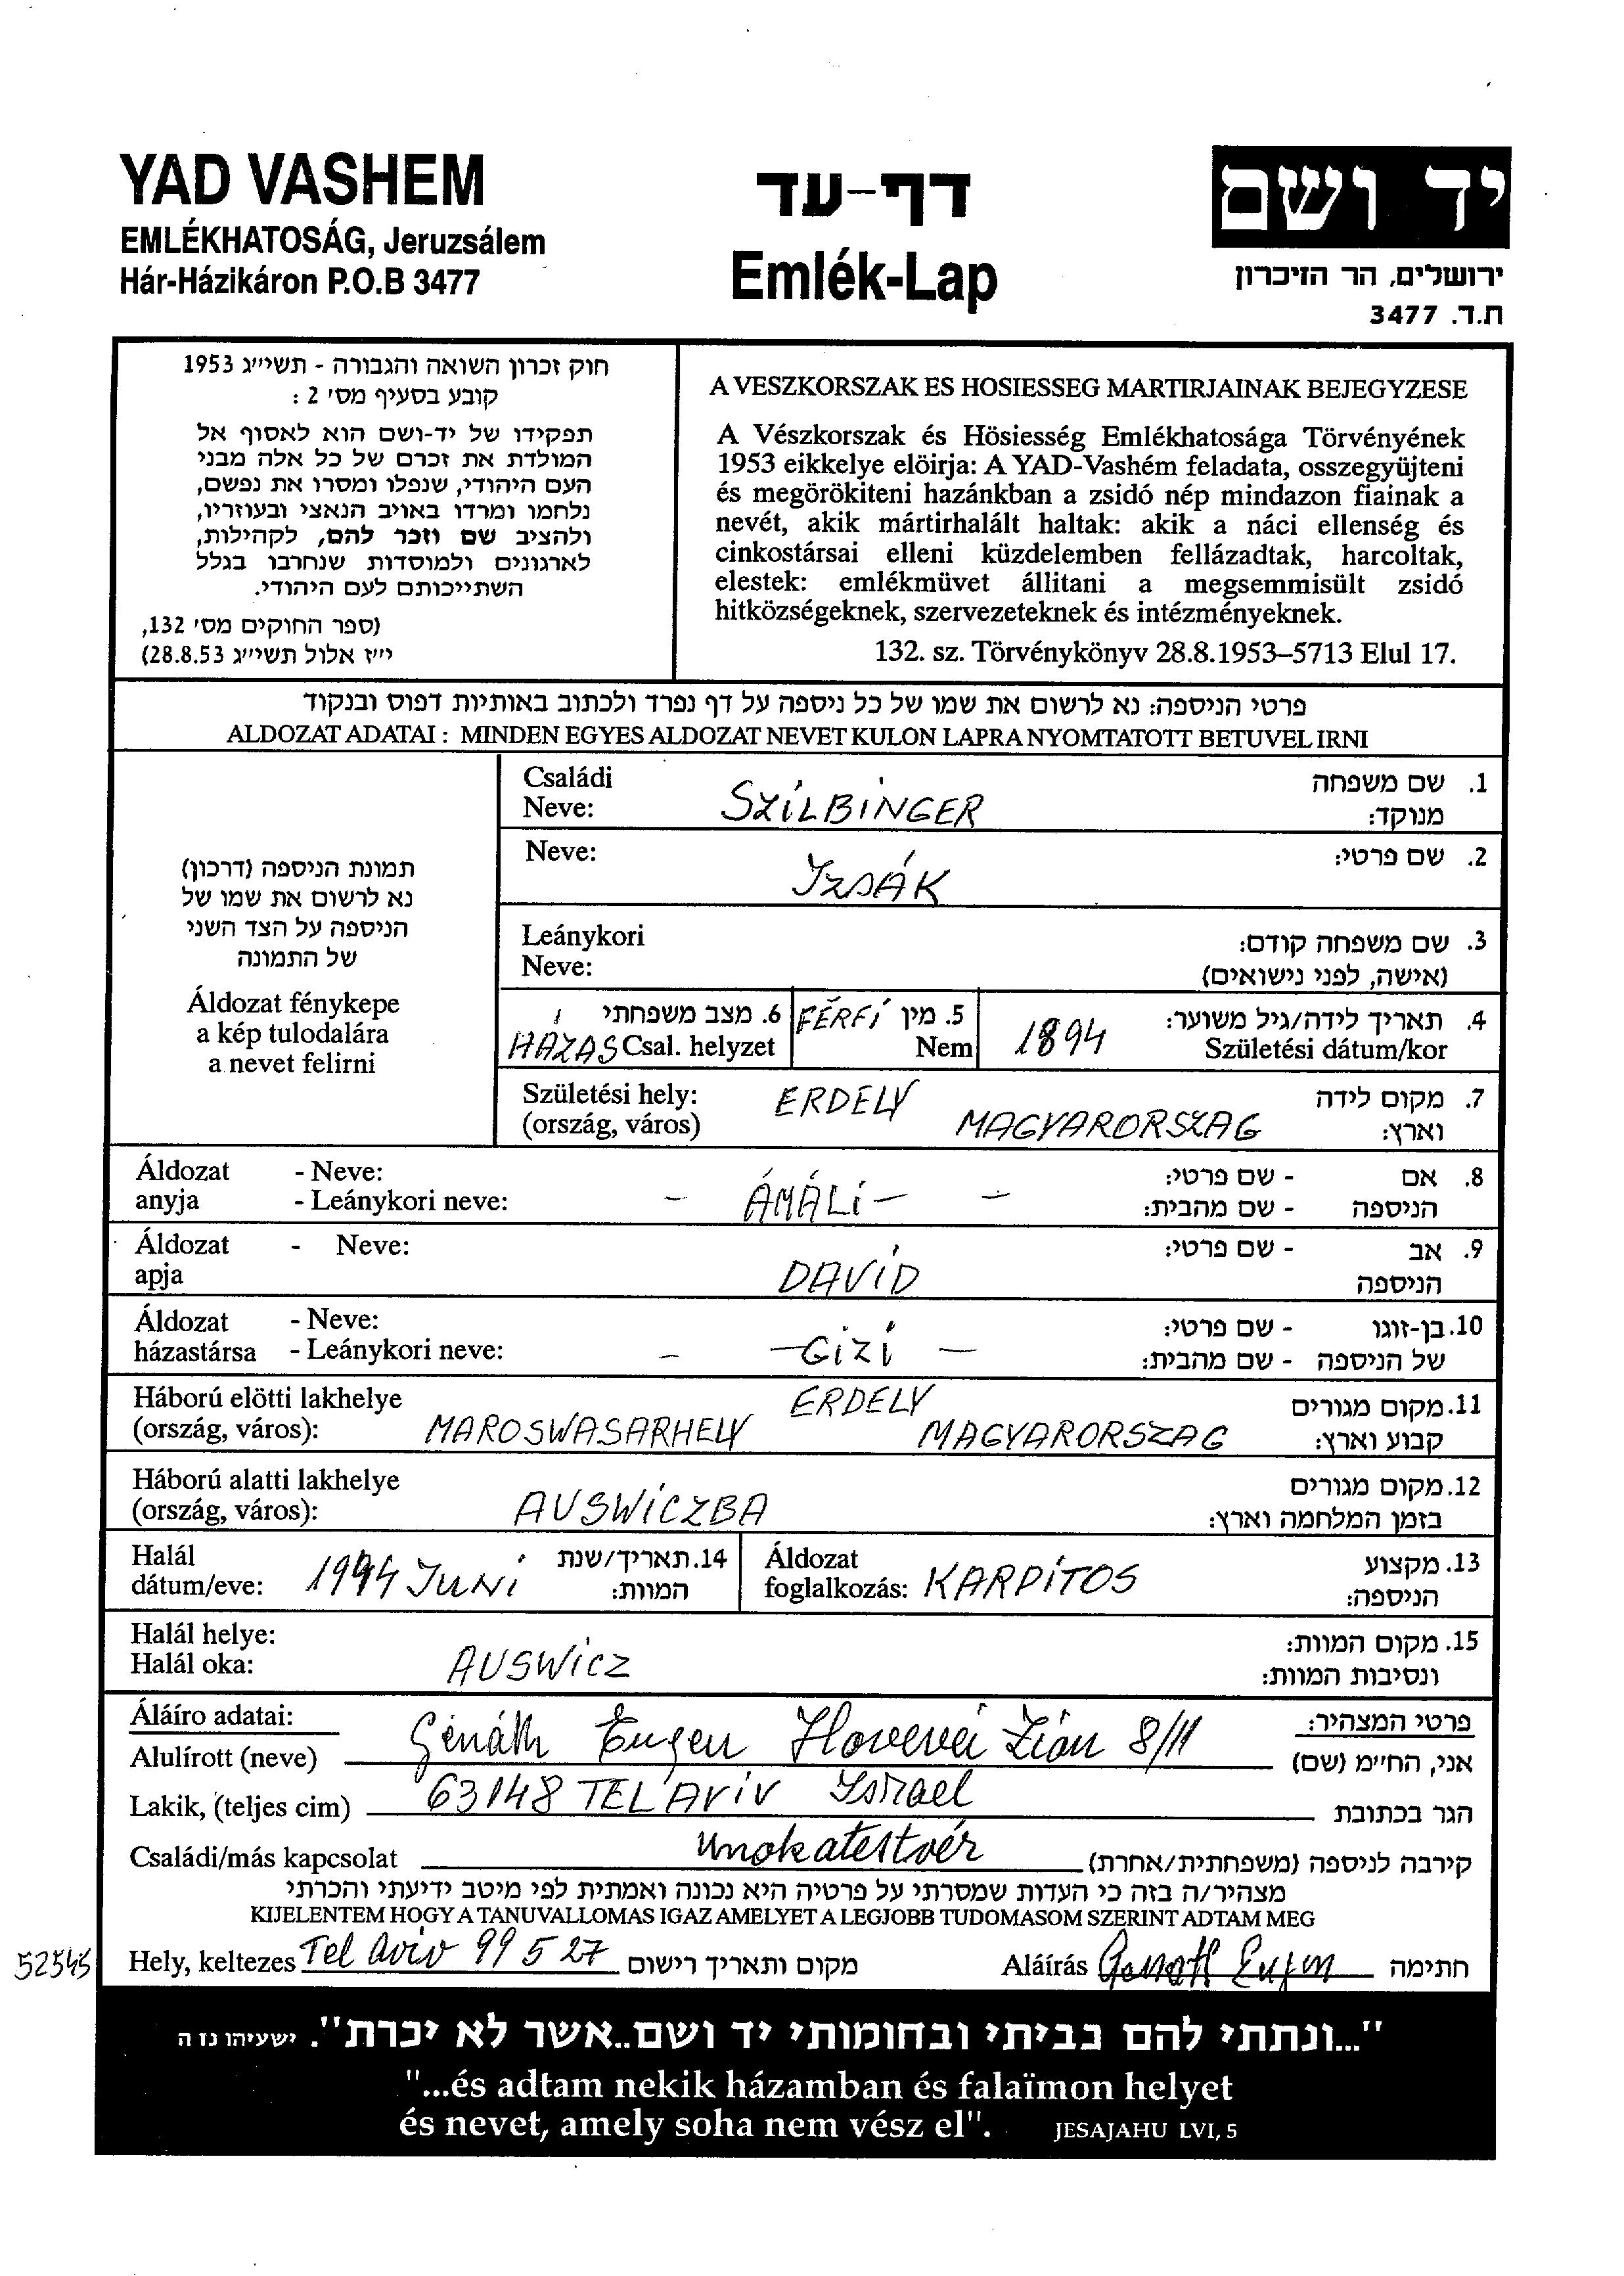 YAD VASHEM
EMLÉKHATOSÁG, Jeruzsálem
Hár-Házikáron P.O.B 3477
דף-עד
Emlék-Lap
יד ושם
ירושלים, הר הזיכרון
ת.ד. 3477
חוק זכרון השואה והגבורה - תשי״ג 1953
קובע בסעיף מס' 2 :
תפקידו של יד-ושם הוא לאסוף אל
המולדת את זכרם של כל אלה מבני
העם היהודי, שנפלו ומסרו את נפשם,
נלחמו ומרדו באויב הנאצי ובעוזריו,
ולהציב שם וזכר להם, לקהילות,
לארגונים ולמוסדות שנחרבו בגלל
השתייכותם לעם היהודי.
(ספר החוקים מס' 132,
י״ז אלול תשי״ג 28.8.53)
A VESZKORSZAK ES HOSIESSEG MARTIRJAINAK BEJEGYZESE
A Vészkorszak és Hösiesség Emlékhatosága Törvényének
1953 eikkelye elöirja: A YAD-Vashém feladata, osszegyüjteni
és megörökiteni hazánkban a zsidó nép mindazon fiainak a
nevét, akik mártirhalált haltak: akik a náci ellenség és
cinkostársai elleni küzdelemben fellázadtak, harcoltak,
elestek: emlékmüvet állitani a megsemmisült zsidó
hitközségeknek, szervezeteknek és intézményeknek.
132. sz. Törvénykönyv 28.8.1953–5713 Elul 17.
פרטי הניספה: נא לרשום את שמו של כל ניספה על דף נפרד ולכתוב באותיות דפוס ובנקוד
ALDOZAT ADATAI : MINDEN EGYES ALDOZAT NEVET KULON LAPRA NYOMTATOTT BETUVEL IRNI
תמונת הניספה (דרכון)
נא לרשום את שמו של
הניספה על הצד השני
של התמונה
Áldozat fénykepe
a kép tulodalára
a nevet felirni
Családi SZÍLBINGER 1. שם משפחה
Neve: מנוקד:
Neve: IZSÁK 2. שם פרטי:
Leánykori 3. שם משפחה קודם:
Neve: (אישה, לפני נישואים)
6. מצב משפחתי FÉRFI 5. מין 1894 4. תאריך לידה/גיל משוער:
HÁZAS Csal. helyzet Nem Születési dátum/kor
Születési hely: ERDELY 7. מקום לידה
(ország, város) MAGYARORSZAG וארץ:
Áldozat - Neve: 8. אם - שם פרטי:
anyja - Leánykori neve: - ÁMÁLI - - הניספה - שם מהבית:
Áldozat - Neve: 9. אב - שם פרטי:
apja DAVID הניספה
Áldozat - Neve: 10. בן-זוגו - שם פרטי:
házastársa - Leánykori neve: - - GIZI - של הניספה - שם מהבית:
Háború elötti lakhelye ERDELY 11. מקום מגורים
(ország, város): MAROSWASARHELY MAGYARORSZAG קבוע וארץ:
Háború alatti lakhelye 12. מקום מגורים
(ország, város): AUSWICZBA בזמן המלחמה וארץ:
Halál 1944 JUNI 14. תאריך/שנת Áldozat KARPITOS 13. מקצוע
dátum/eve: המוות: foglalkozás: הניספה:
Halál helye: 15. מקום המוות:
Halál oka: AUSWICZ ונסיבות המוות:
Áláíro adatai: פרטי המצהיר:
Alulírott (neve) Génáth Eugen Hovevei Zion 8/11 אני, הח״מ (שם)
Lakik, (teljes cim) 63148 TEL AVIV Israel הגר בכתובת
Családi/más kapcsolat unokatestvér קירבה לניספה (משפחתית/אחרת)
מצהיר/ה בזה כי העדות שמסרתי על פרטיה היא נכונה ואמתית לפי מיטב ידיעתי והכרתי
KIJELENTEM HOGY A TANUVALLOMAS IGAZ AMELYET A LEGJOBB TUDOMASOM SZERINT ADTAM MEG
52545 Hely, keltezes Tel Aviv 99 5 27 מקום ותאריך רישום Aláírás Genath Eugen חתימה
"...ונתתי להם בביתי ובחומותי יד ושם..אשר לא יכרת". ישעיהו נז ה
"...és adtam nekik házamban és falaïmon helyet
és nevet, amely soha nem vész el". JESAJAHU LVI, 5